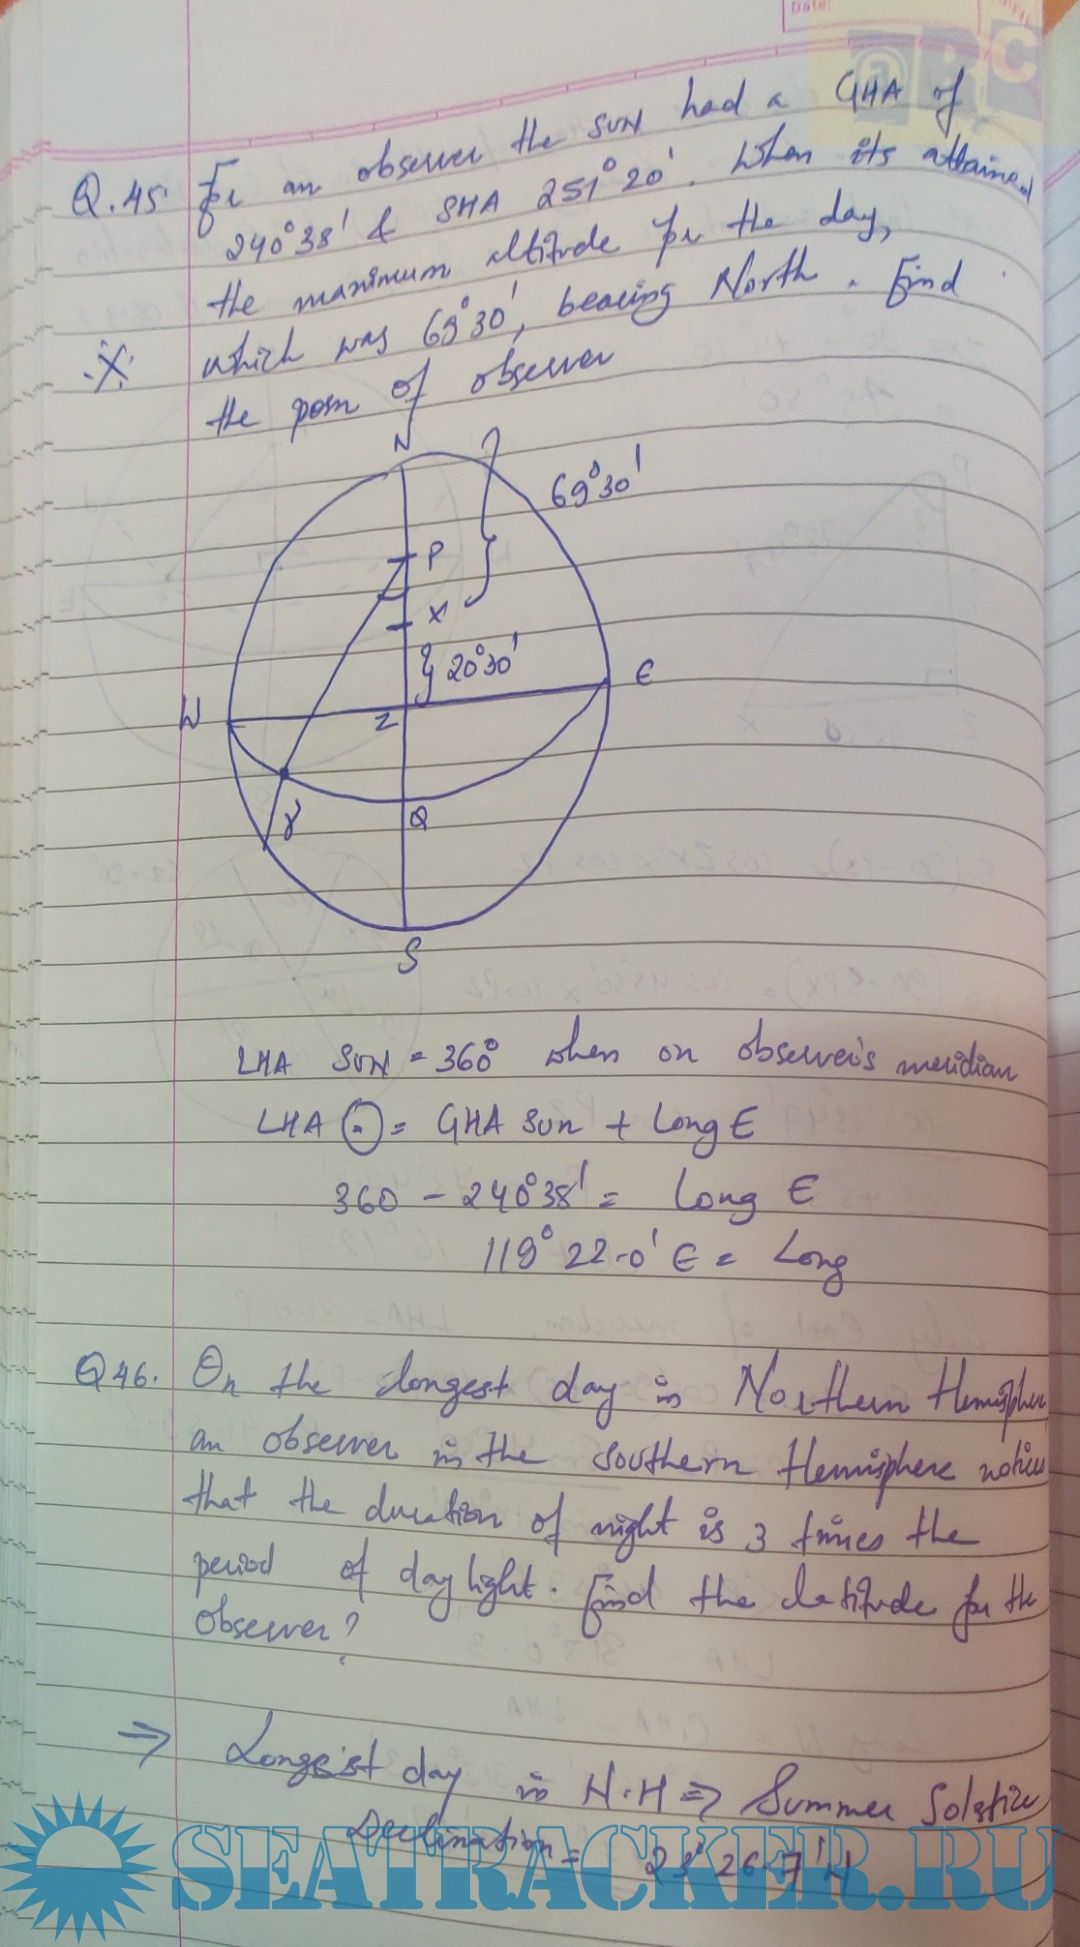 Date:
@BC
Q.45. For an observer the SUN had a GHA of
240°38' & SHA 251°20'. When its attained
the maximum altitude for the day,
which was 69°30', bearing North. Find
the posn of observer
N
69°30'
P
X
20°30'
W
Z
E
γ
Q
S
LHA SUN = 360° when on observer's meridian
LHA ☉ = GHA Sun + Long E
360 - 240°38' = Long E
119° 22.0' E = Long
Q46. On the longest day in Northern Hemisphere
an observer in the Southern Hemisphere notices
that the duration of night is 3 times the
period of daylight. Find the latitude for the
observer?
⇒ Longest day in N.H ⇒ Summer Solstice
Declination = 23° 26.7' N
SEATRACKER.RU